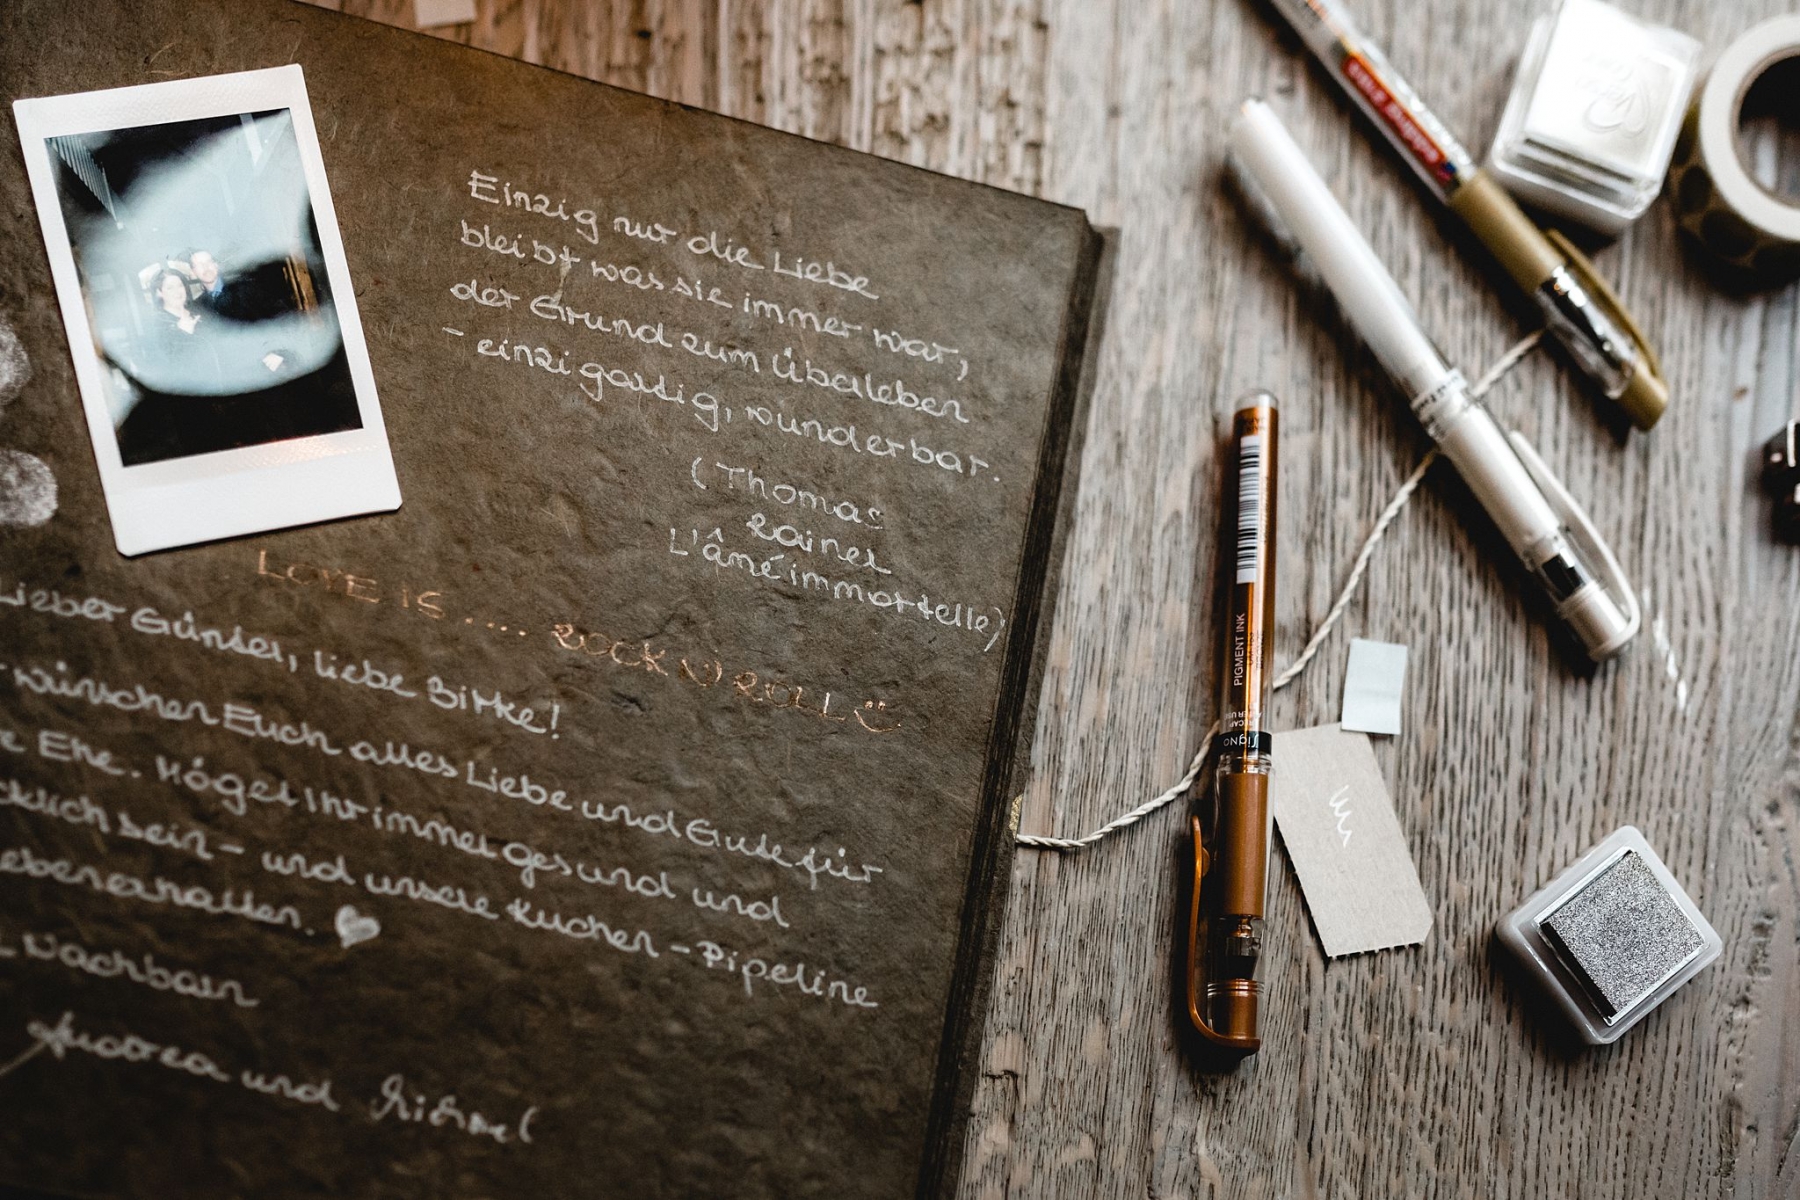 Einzig nur die Liebe
bleibt was sie immer war,
der Grund zum Überleben
- einzigartig, wunderbar.
(Thomas
Rainer
L'âmé immortelle)
LOVE IS..... ROCK N ROLL
Lieber Günter, liebe Birke!
wünschen Euch alles Liebe und Gute für
Ehe. Möget Ihr immer gesund und
sein - und unsere Kuchen-Pipeline
♥
Nachbarn
Andrea und
PIGMENT INK
signo